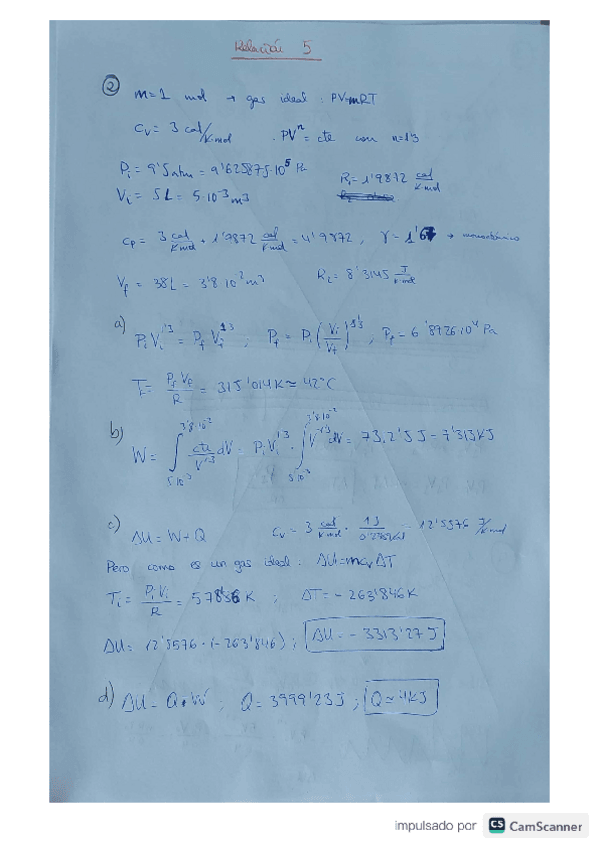 Relación 5
② m=1 mol → gas ideal : PV=mRT
Cv= 3 cal/K·mol . PVⁿ = cte con n=1'3
Pi = 9'5atm = 9'625875·10⁵ Pa R1=1'9872 cal/K·mol
Vi = 5L = 5·10⁻³m³
Cp= 3 cal/K·mol + 1'9872 cal/K·mol = 4'9872 , γ = 1'67 → monoatómico
Vf = 38L = 3'8·10⁻²m³ R2 = 8'3145 J/K·mol
a) Pi Vi^1'3 = Pf Vf^1'3 ; Pf = Pi (Vi/Vf)^1'3 , Pf = 6'8926·10⁴ Pa
Tf = Pf Vf/R = 315'014K ≃ 42°C
b) W = ∫ 5·10⁻³ 3'8·10⁻² cte/V^1'3 dV = Pi Vi^1'3 · ∫ 5·10⁻³ 3'8·10⁻² V^-1'3 dV = 7312'5 J = 7'313KJ
c) ΔU = W+Q Cv = 3 cal/K·mol · 1J/0'238902 = 12'5576 J/K·mol
Pero como es un gas ideal : ΔU=mCvΔT
Ti = Pi Vi/R = 578'86 K ; ΔT = -263'846K
ΔU = 12'5576·(-263'846) ; ΔU = -3313'27 J
d) ΔU = Q+W ; Q = 3999'23J ; Q ≃ 4KJ
impulsado por CS CamScanner